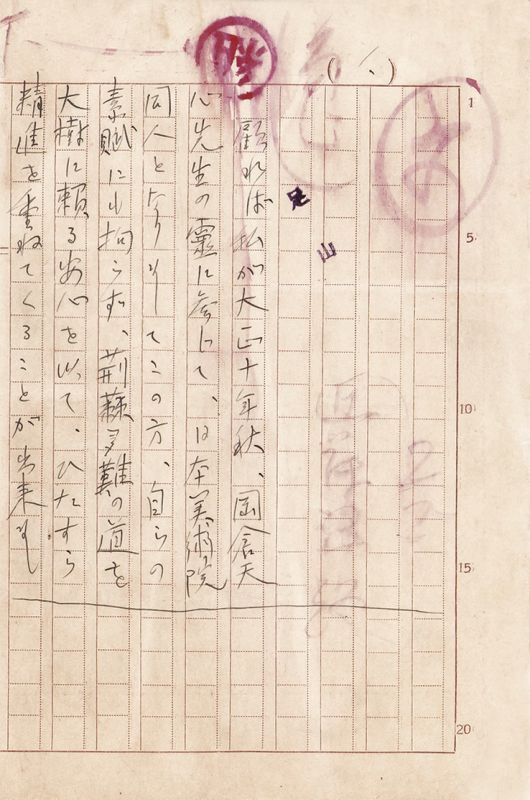 (一)
足
山
顧れば私が大正十年秋、岡倉天
心先生の靈に参じて、日本美術院
同人となりましてこの方、自らの
素賦にも拘らず、荊蕀多難の道を
大樹に頼る安心を以て、ひたすら
精進を重ねてくることが出来まし
1
5
10
15
20